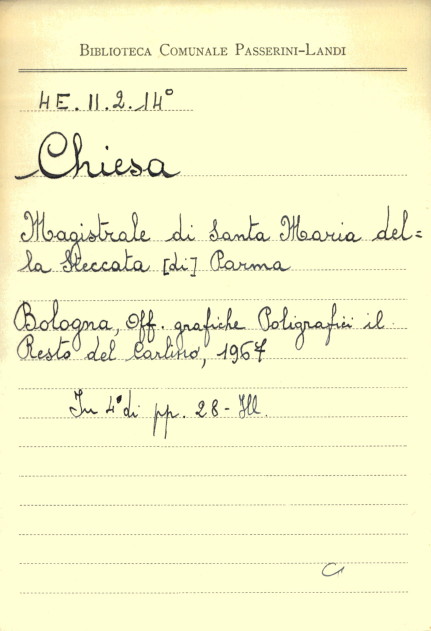 BIBLIOTECA COMUNALE PASSERINI-LANDI
4E.II.2.14°
Chiesa
Magistrale di Santa Maria del=
la Steccata [di] Parma
Bologna, Off. grafiche Poligrafici il
Resto del Carlino, 1967
In 4° di pp. 28 - Ill.